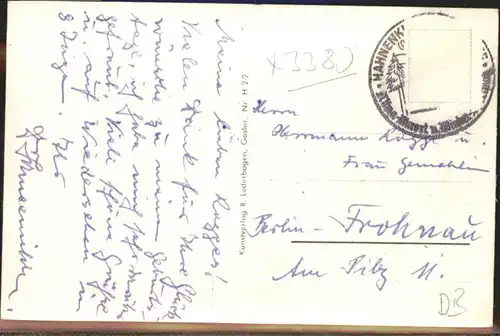 Meine lieben Rugges!
Vielen Dank für Ihre Glück-
wünsche zu meinem Geburts-
tage, ich habe mich sehr darüber
gefreut. Viele schöne Grüße
u. auf Wiedersehen in
8 Tagen. Ihr
Kunstverlag R. Lederbogen, Goslar, Nr. H 22
x3380
HAHNENKL
Herrn
Herrmann Rugge u.
Frau Gemahlin
Berlin-Frohnau
Am Pilz 11.
DB